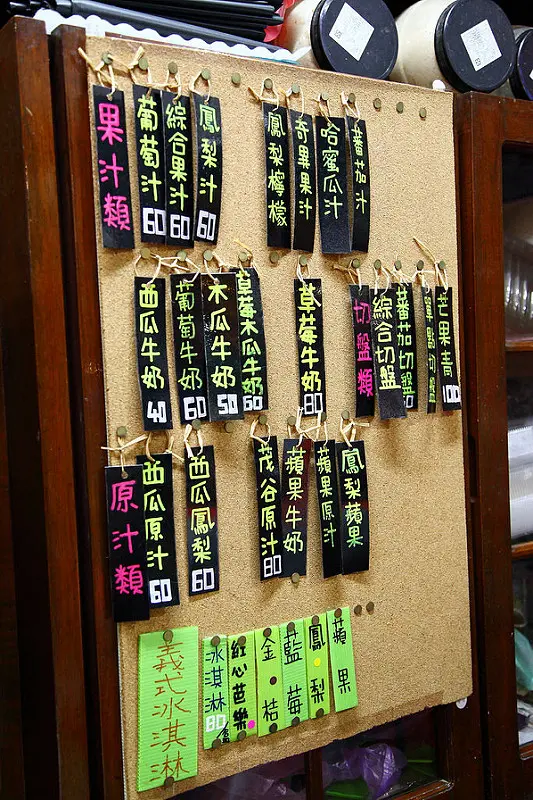 果汁類
葡萄汁 60
綜合果汁 60
鳳梨汁 60
鳳梨檸檬
奇異果汁
哈蜜瓜汁
蕃茄汁
西瓜牛奶 40
葡萄牛奶 60
木瓜牛奶 50
草莓木瓜牛奶 60
草莓牛奶 80
切盤類
綜合切盤
蕃茄切盤
單點切盤
芒果青 100
原汁類
西瓜原汁 60
西瓜鳳梨 60
茂谷原汁 80
蘋果牛奶
蘋果原汁
鳳梨蘋果
義式冰淇淋
冰淇淋 80
紅心芭樂
金桔
藍莓
鳳梨
蘋果